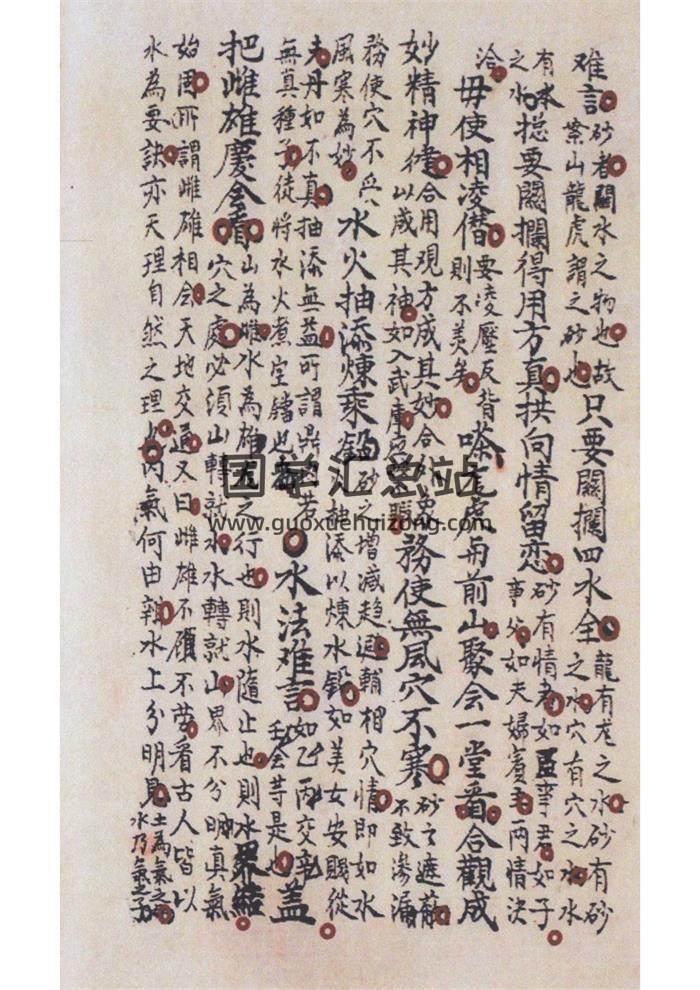 难言砂者關水之物也故只要關攔四水全龍有龙之水砂有砂
案山龍虎謂之砂也之水穴有穴之水水
有水揔要關攔得用方真拱向情留恋砂有情者如臣事君如子
之水事父如夫婦賓主两情決
洽毋使相凌僭要凌壓反背嗏左處兩前山聚会一堂看合觀成
則不美矣
妙精神健合用观方成其妙合外务使無風穴不寒砂之遮蔽
以成其神如入武庫不致滲漏
務使穴不水火抽添煉汞鉛砂之增减趋避輔相穴情即如水
風寒為妙火抽添以煉水鉛如美女安賜從
夫丹如不真抽添無益所謂鼎若水法难言如乙丙交壬会等是也盖
無真種子徒將水火煮空鐺也
把雌雄慶会看山為雌水為雄之行也則水隨止也則水界結
穴之處必須山轉就水水轉就山界不分明真氣
始固所謂雌雄相会天地交通又曰雌雄不顧不劳看古人皆以
水為要訣亦天理自然之理內氣何由辨水上分明見土為氣之
水乃氣之子
国学汇总站
www.guoxuehuizong.com